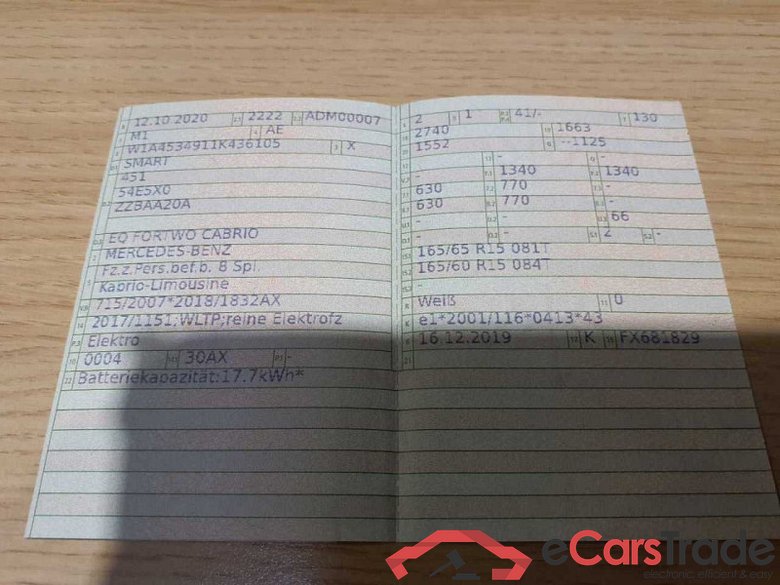 12.10.2020 2222 ADM00007
M1 AE
W1A4534911K436105 X
SMART
451
54E5X0
ZZBAA20A
EQ FORTWO CABRIO
MERCEDES-BENZ
Fz.z.Pers.bef.b. 8 Spl.
Kabrio-Limousine
715/2007*2018/1832AX
2017/1151;WLTP;reine Elektrofz
Elektro
0004 30AX -
Batteriekapazität:17.7kWh*
2 1 41/- 130
2740 1663
1552 --1125
- -
- 1340 1340
630 770 -
630 770 -
- - 66
- - 2 -
165/65 R15 081T
165/60 R15 084T
-
Weiß 0
e1*2001/116*0413*43
16.12.2019 K FX681829
eCarsTrade
electronic, efficient & easy